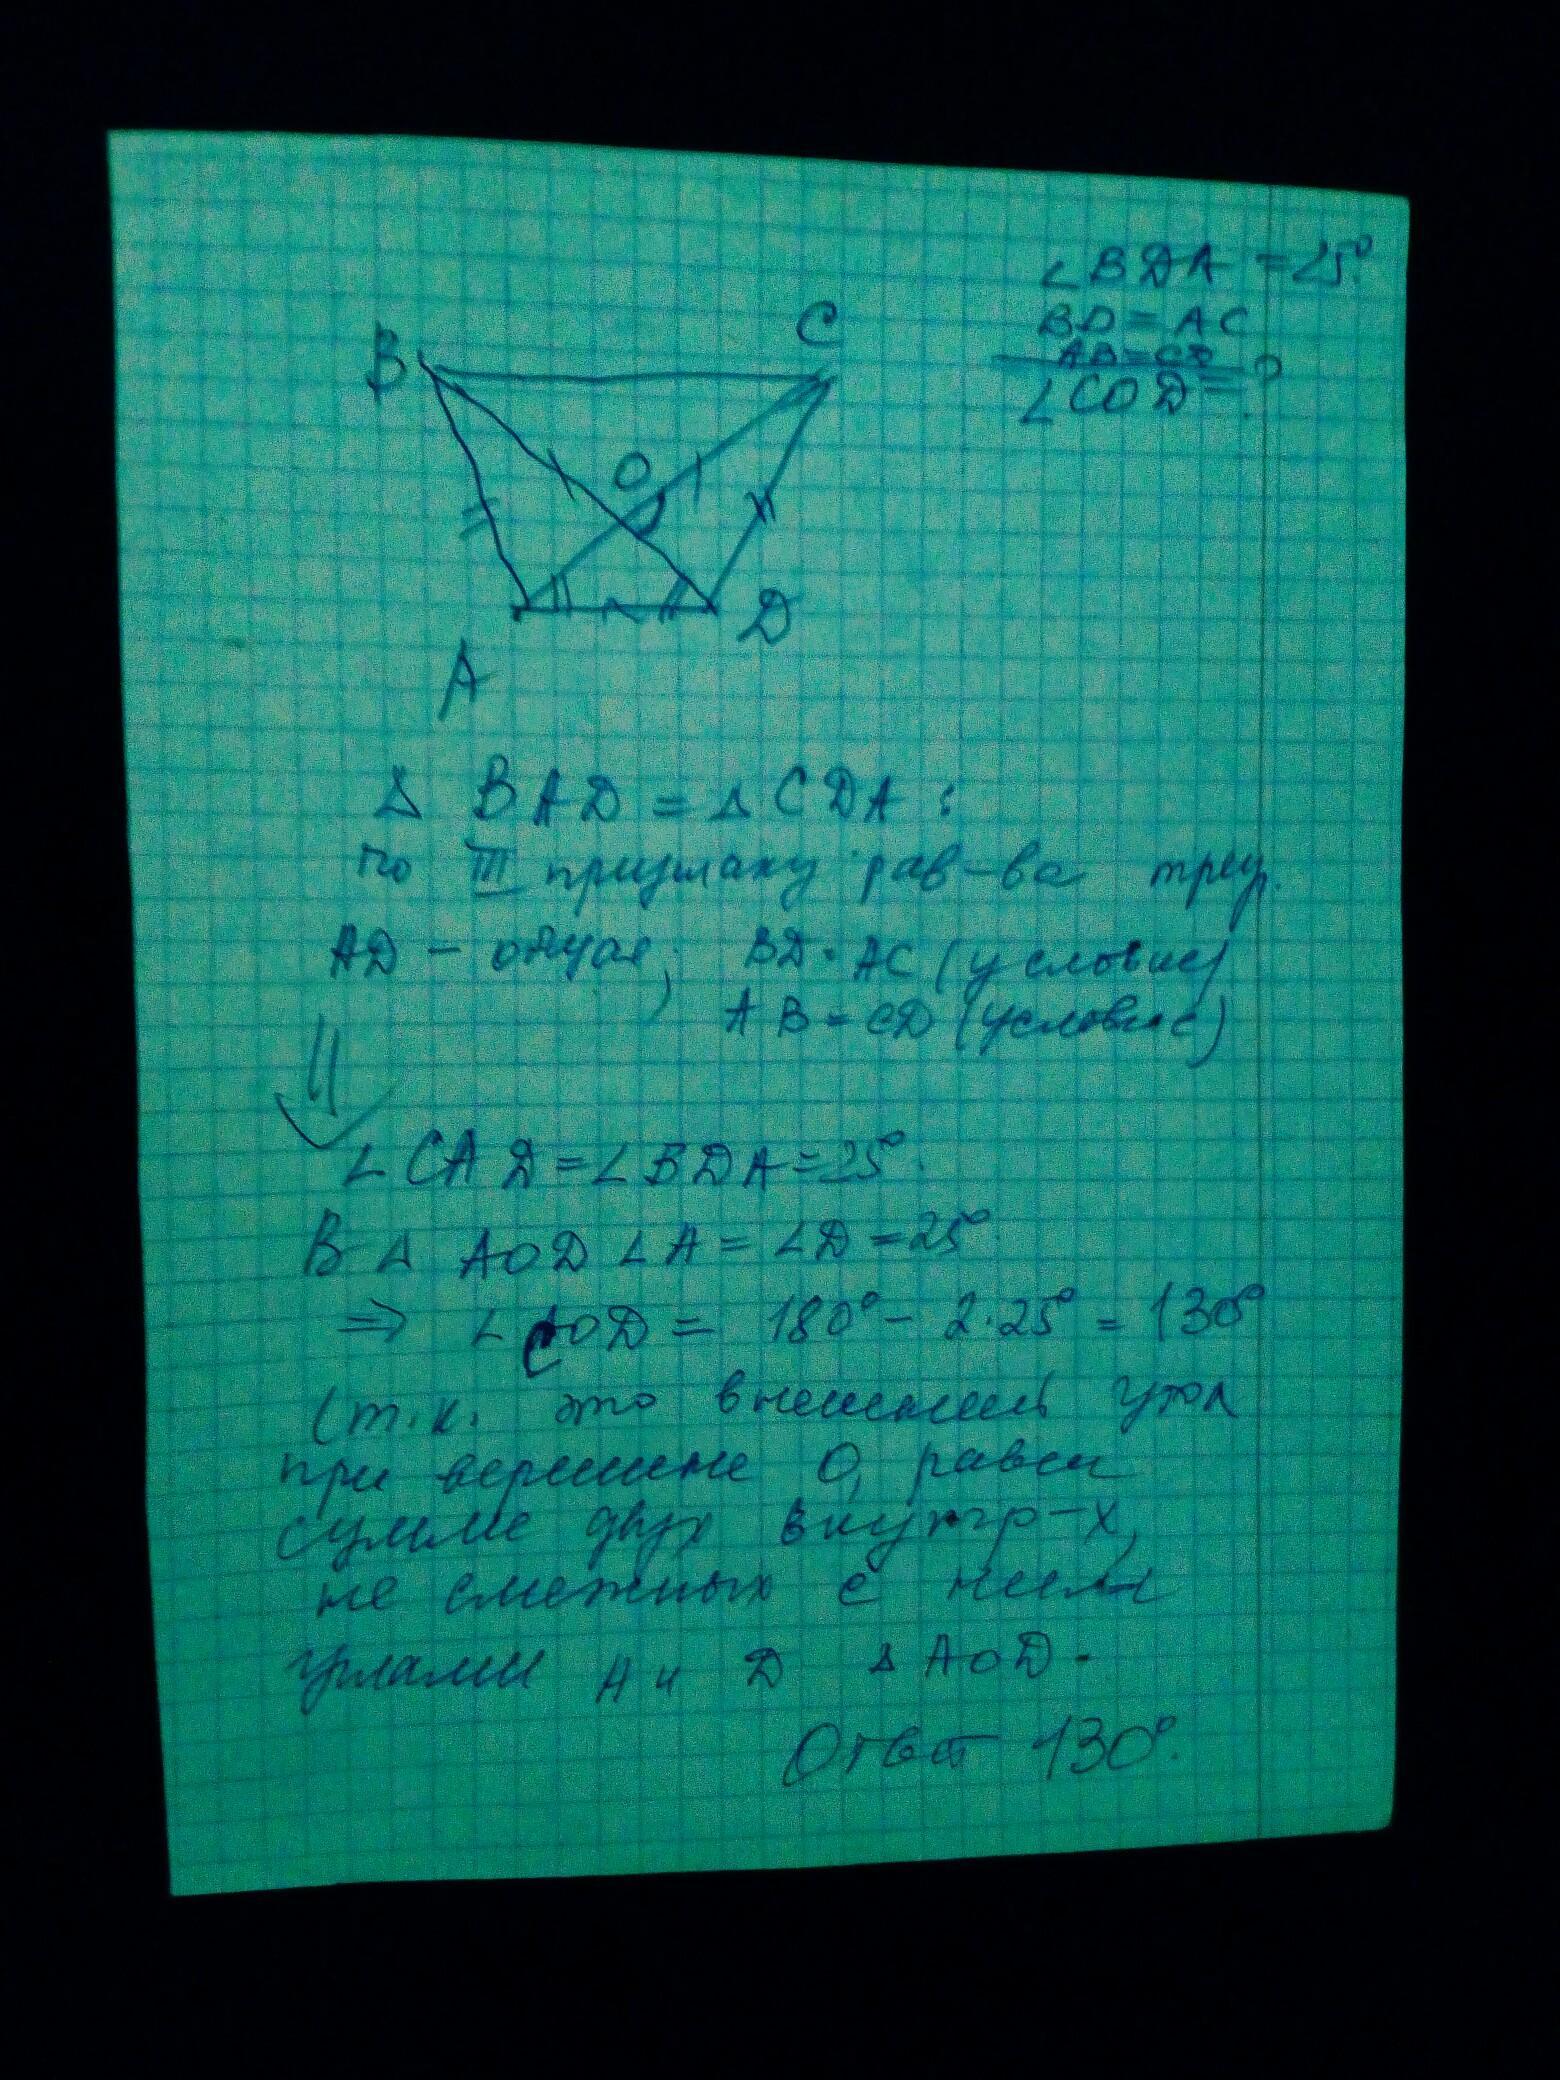 ∠BDA = 25°.
BD = AC
AB = CD
∠COD = ?
B
C
O
A
D
Δ BAD = Δ CDA :
по III признаку рав-ва треуг.
AD – общая, BD = AC (условие)
AB = CD (условие)
⇓
∠CAD = ∠BDA = 25°.
В Δ AOD ∠A = ∠D = 25°.
⇒ ∠COD = 180° – 2·25° = 130°
(т.к. это внешний угол
при вершине O, равен
сумме двух внутр-х,
не смежных с ним
углами A и D Δ AOD.
Ответ 130°.